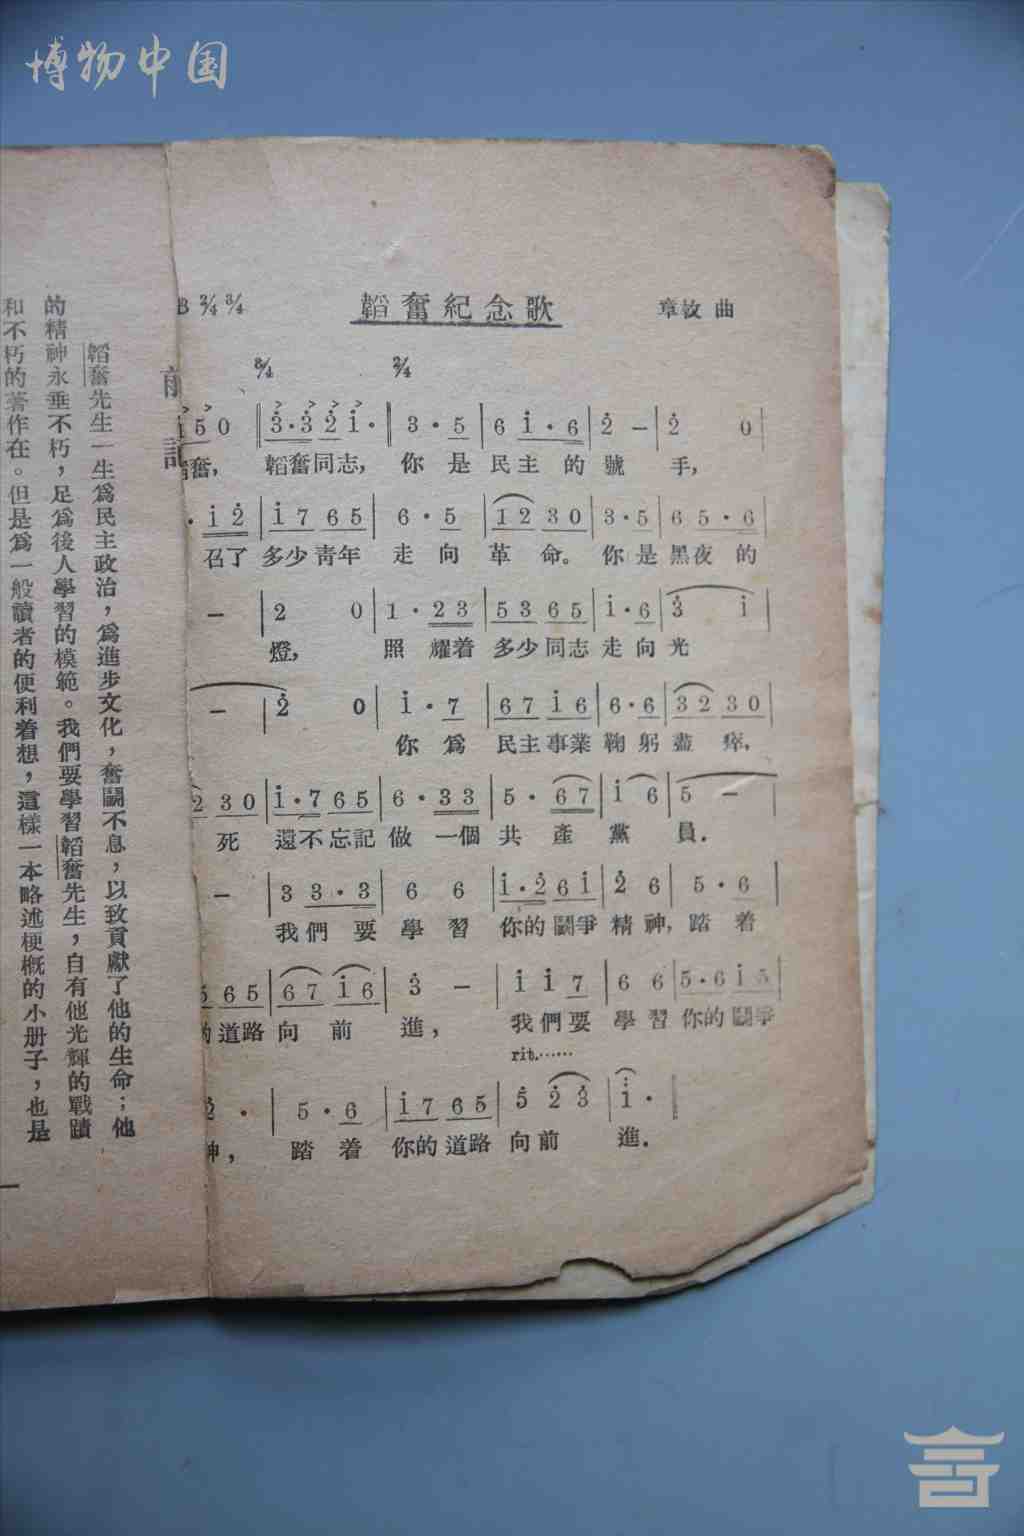 博物中国
B 2/4 3/4
韜奮紀念歌
章敇 曲
3/4 2/4
i 5 0 | 3·3 2 i· | 3 · 5 | 6 i·6 | 2 – | 2 0 |
奮, 韜奮同志, 你 是 民主 的 號 手,
· i 2 | i 7 6 5 | 6 · 5 | 1 2 3 0 | 3·5 | 6 5·6 |
召了 多少青年 走 向 革 命。 你 是 黑夜 的
– | 2 0 | 1 · 2 3 | 5 3 6 5 | i·6 | 3 i |
燈, 照 耀着 多少同志 走 向 光
– | 2 0 | i · 7 | 6 7 i 6 | 6·6 | 3 2 3 0 |
你 爲 民主事業 鞠 躬 盡 瘁,
2 3 0 | i·7 6 5 | 6 · 3 3 | 5 · 6 7 | i 6 | 5 – |
死 還不忘記 做 一個 共 產 黨 員.
– | 3 3·3 | 6 6 | i·2 6 i | 2 6 | 5·6 |
我們 要 學 習 你的鬭爭 精 神, 踏 着
5 6 5 | 6 7 i 6 | 3 – | i i 7 | 6 6 | 5·6 i 5 |
的 道路 向 前 進, 我們要 學 習 你的鬭爭
rit.……
2 · | 5 · 6 | i 7 6 5 | 5 2 3 | i · ‖
神, 踏 着 你的道路 向前 進.
前記
韜奮先生一生爲民主政治，爲進步文化，奮鬭不息，以致貢獻了他的生命；他
的精神永垂不朽，足爲後人學習的模範。我們要學習韜奮先生，自有他光輝的戰蹟
和不朽的著作在。但是爲一般讀者的便利着想，這樣一本略述梗槪的小册子，也是